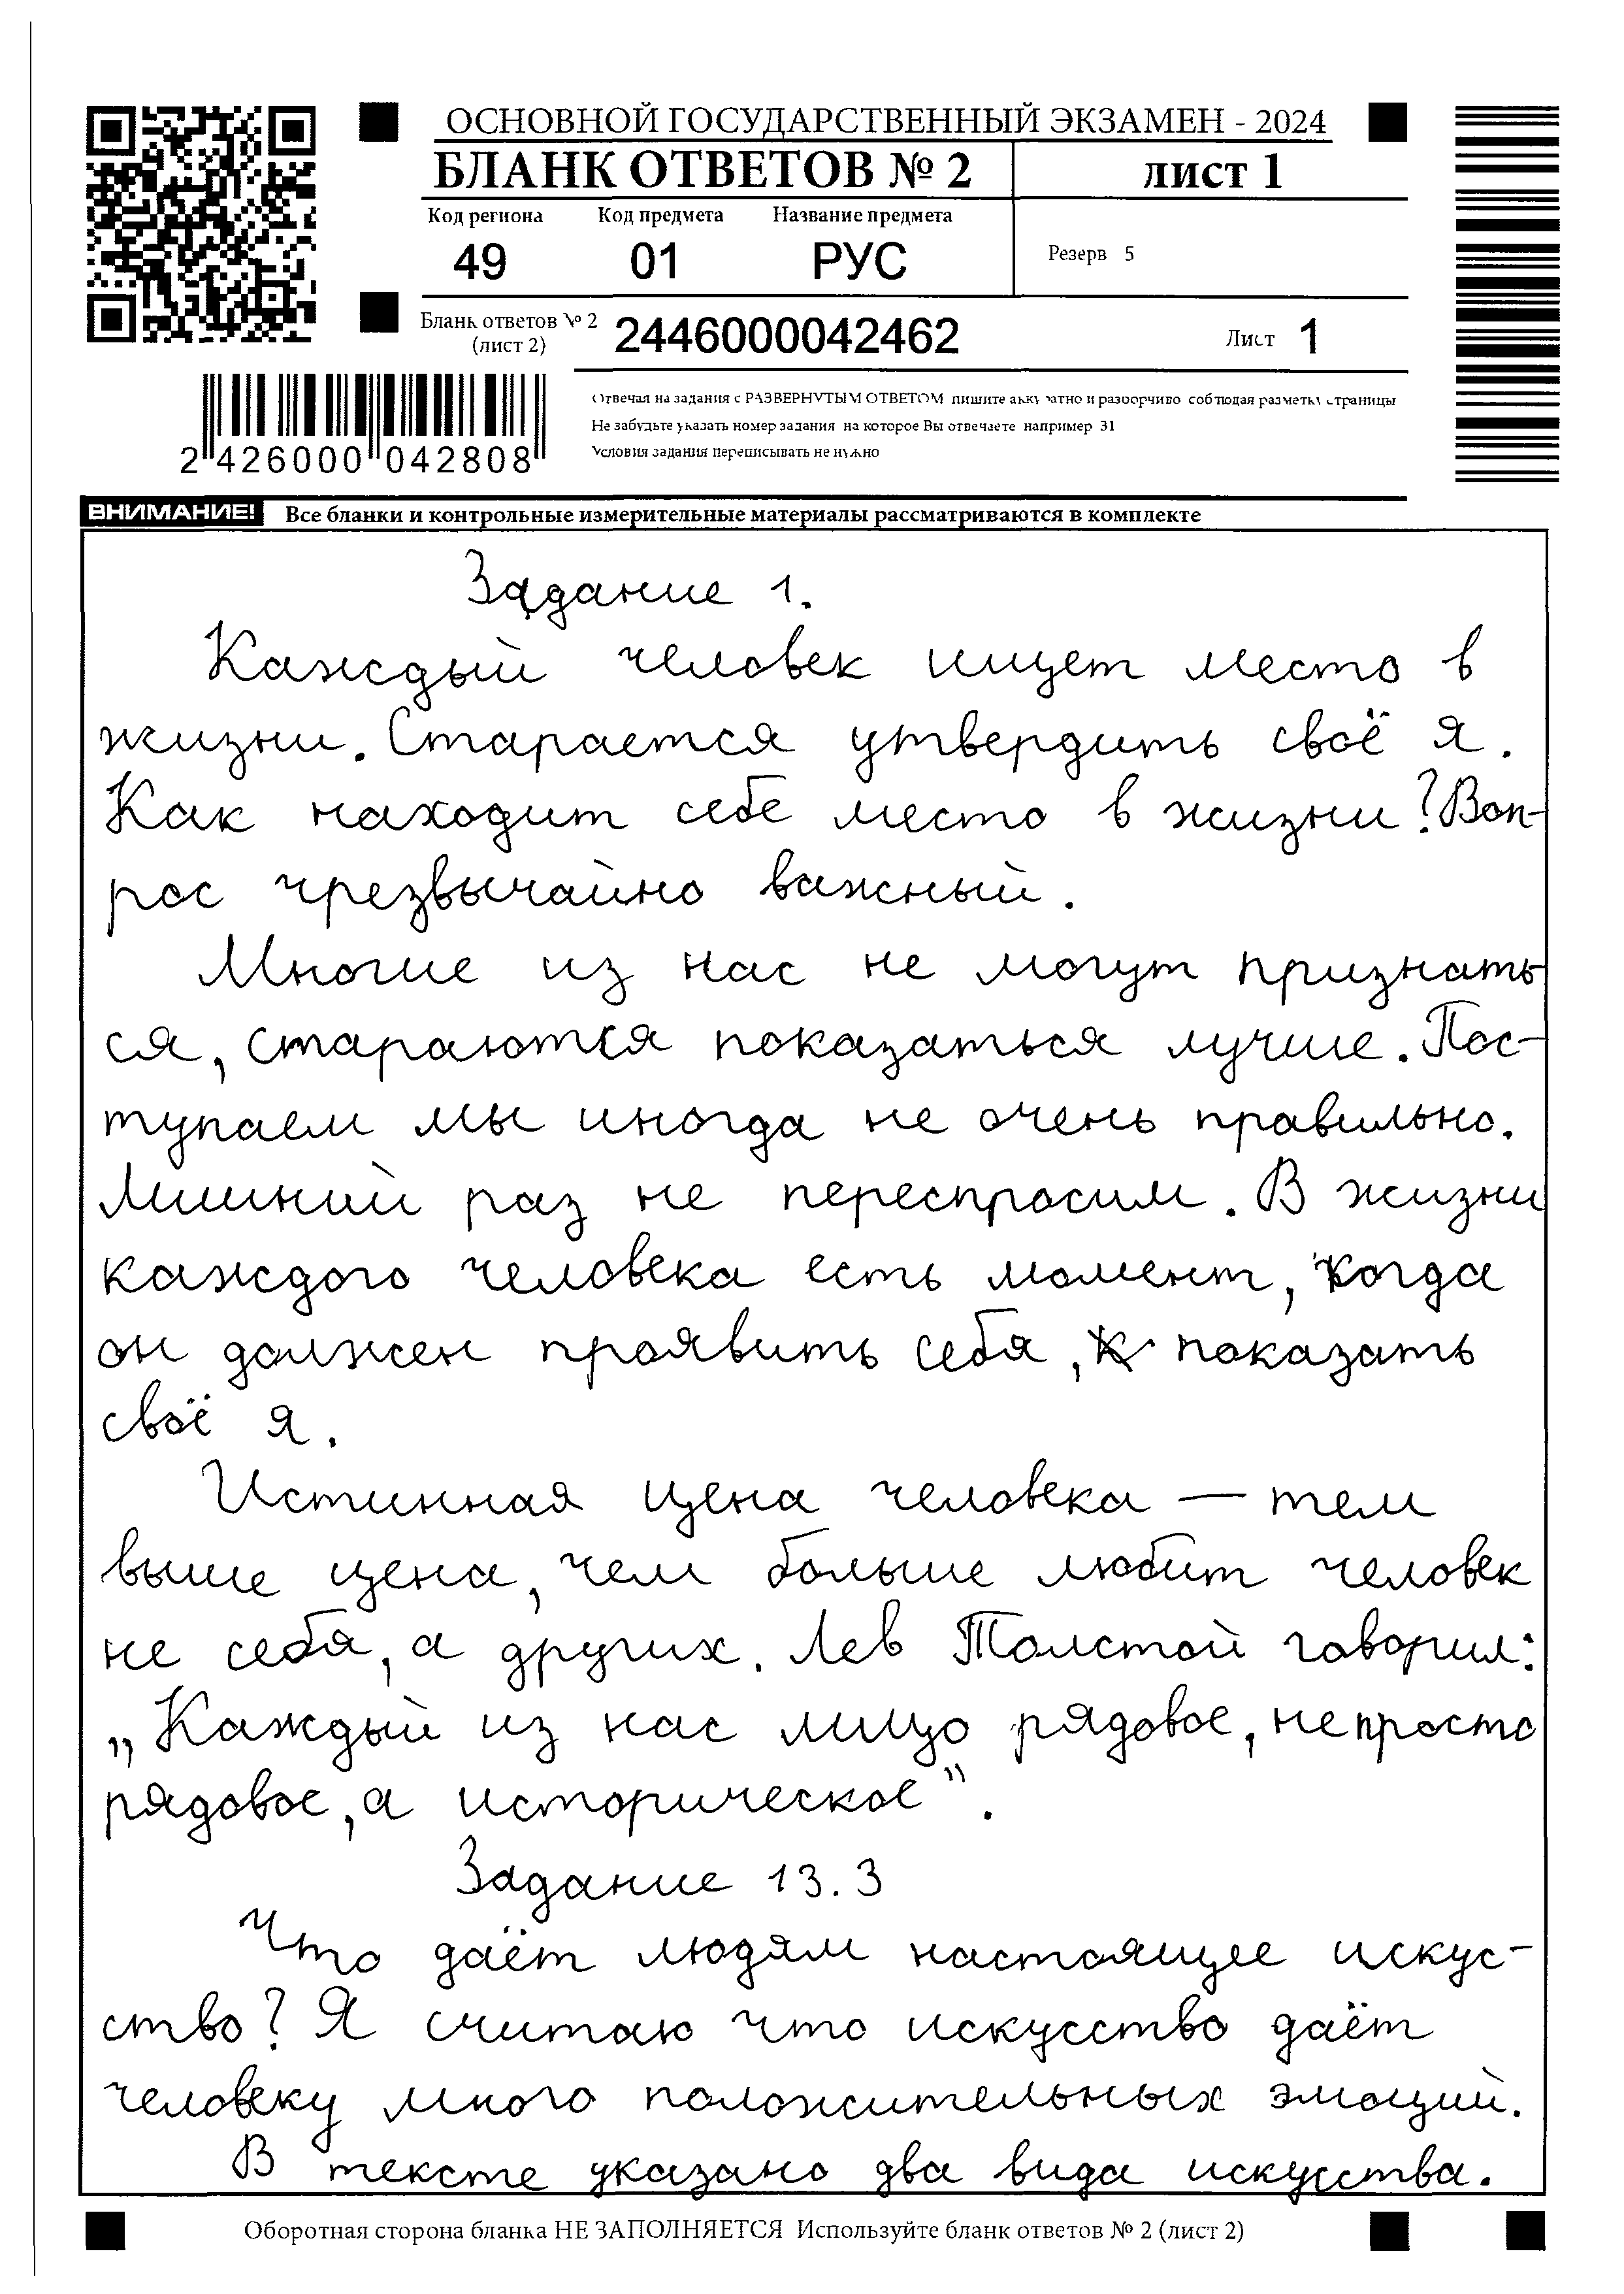 ОСНОВНОЙ ГОСУДАРСТВЕННЫЙ ЭКЗАМЕН - 2024
БЛАНК ОТВЕТОВ № 2 лист 1
Код региона Код предмета Название предмета
49 01 РУС
Резерв 5
Бланк ответов № 2
(лист 2)
2446000042462
Лист 1
Отвечая на задания с РАЗВЕРНУТЫМ ОТВЕТОМ пишите аккуратно и разборчиво соблюдая разметку страницы
Не забудьте указать номер задания на которое Вы отвечаете например 31
Условия задания переписывать не нужно
2 426000 042808
ВНИМАНИЕ! Все бланки и контрольные измерительные материалы рассматриваются в комплекте
Задание 1.
Каждый человек ищет место в
жизни. Старается утвердить своё я.
Как находит себе место в жизни? Воп-
рос чрезвычайно важный.
Многие из нас не могут признать-
ся, стараются показаться лучше. Пос-
тупаем мы иногда не очень правильно.
Лишний раз не переспросим. В жизни
каждого человека есть момент, когда
он должен проявить себя, показать
своё я.
Истинная цена человека — тем
выше цена, чем больше любит человек
не себя, а других. Лев Толстой говорил:
„Каждый из нас лицо рядовое, не просто
рядовое, а историческое".
Задание 13.3
Что даёт людям настоящее искус-
ство? Я считаю что искусство даёт
человеку много положительных эмоций.
В тексте указано два вида искусства.
Оборотная сторона бланка НЕ ЗАПОЛНЯЕТСЯ Используйте бланк ответов № 2 (лист 2)